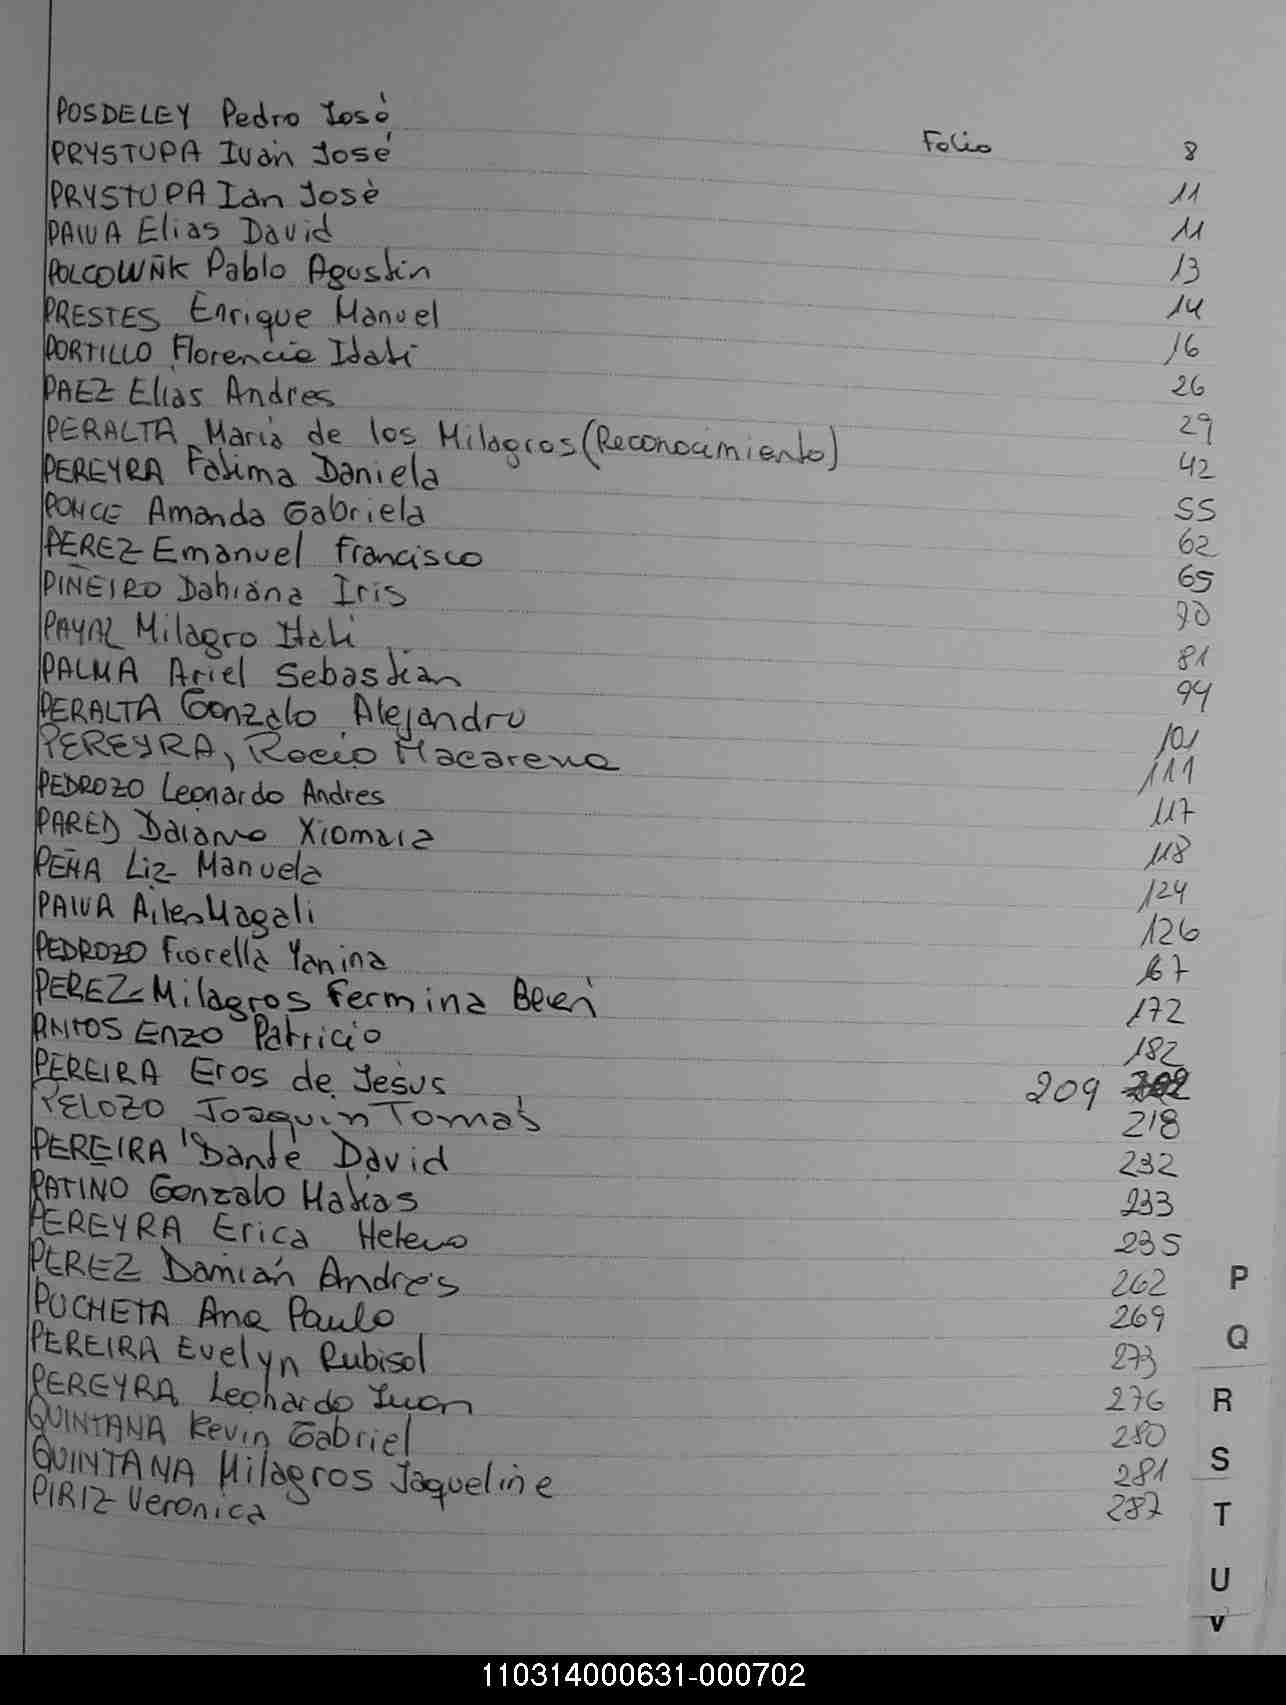 POSDELEY Pedro José Folio 8
PRYSTUPA Iván José 11
PRYSTUPA Ian José 11
PAIVA Elias David 13
POLCOWÑK Pablo Agustin 14
PRESTES Enrique Manuel 16
PORTILLO Florencia Itati 26
PAEZ Elias Andres 29
PERALTA Maria de los Milagros (Reconocimiento) 42
PEREYRA Fatima Daniela 55
PONCE Amanda Gabriela 62
PEREZ Emanuel Francisco 65
PIÑEIRO Dahiana Iris 70
PAYAL Milagro Itati 81
PALMA Ariel Sebastian 94
PERALTA Gonzalo Alejandro 101
PEREYRA, Rocio Macarena 111
PEDROZO Leonardo Andres 117
PARED Daiana Xiomara 118
PEÑA Liz Manuela 124
PAIVA Ailen Magali 126
PEDROZO Fiorella Yanina 167
PEREZ Milagros Fermina 172
Enzo Patricio 182
PEREIRA Eros de Jesús 209
PELOZO Joaquin Tomás 218
PEREIRA Dante David 232
PATINO Gonzalo Matias 233
PEREYRA Erica Helena 235
PEREZ Damián Andrés 262
PUCHETA Ana Paula 269
PEREIRA Evelyn Rubisol 273
PEREYRA Leonardo Juan 276
QUINTANA Kevin Gabriel 280
QUINTANA Milagros Jaqueline 281
PIRIZ Veronica 287
P
Q
R
S
T
U
V
110314000631-000702